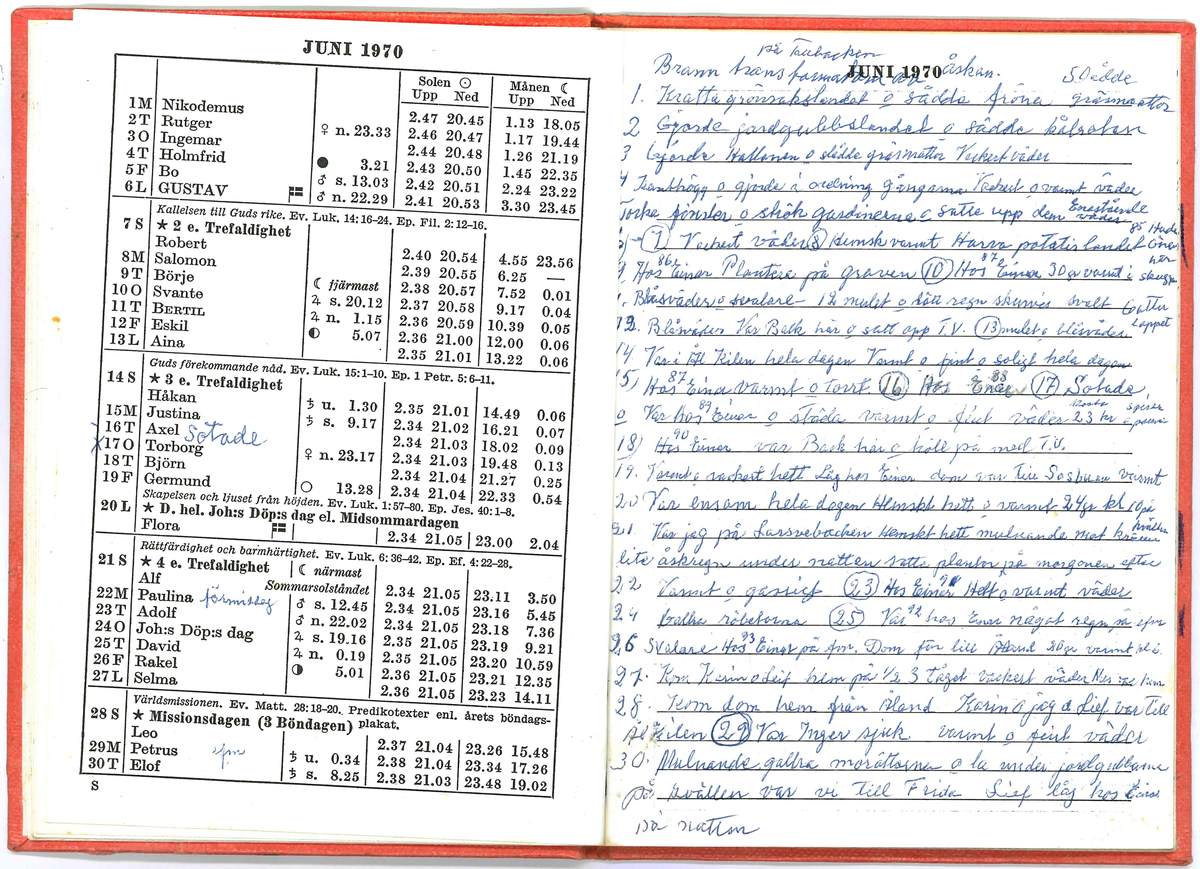 JUNI 1970
Solen ☉ Månen ☾
Upp Ned Upp Ned
1 M Nikodemus 2.47 20.45 1.13 18.05
2 T Rutger ♀ n. 23.33 2.46 20.47 1.17 19.44
3 O Ingemar 2.44 20.48 1.26 21.19
4 T Holmfrid ● 3.21 2.43 20.50 1.45 22.35
5 F Bo ♂ s. 13.03 2.42 20.51 2.24 23.22
6 L GUSTAV ♂ n. 22.29 2.41 20.53 3.30 23.45
Kallelsen till Guds rike. Ev. Luk. 14:16-24. Ep. Fil. 2:12-16.
7 S ★ 2 e. Trefaldighet
Robert 2.40 20.54 4.55 23.56
8 M Salomon 2.39 20.55 6.25 —
9 T Börje ☾ fjärmast 2.38 20.57 7.52 0.01
10 O Svante ♃ s. 20.12 2.37 20.58 9.17 0.04
11 T BERTIL ♃ n. 1.15 2.36 20.59 10.39 0.05
12 F Eskil ◐ 5.07 2.36 21.00 12.00 0.06
13 L Aina 2.35 21.01 13.22 0.06
Guds förekommande nåd. Ev. Luk. 15:1-10. Ep. 1 Petr. 5:6-11.
14 S ★ 3 e. Trefaldighet
Håkan ♄ u. 1.30 2.35 21.01 14.49 0.06
15 M Justina ♄ s. 9.17 2.34 21.02 16.21 0.07
16 T Axel Sotade 2.34 21.03 18.02 0.09
17 O Torborg ♀ n. 23.17 2.34 21.03 19.48 0.13
18 T Björn 2.34 21.04 21.27 0.25
19 F Germund ○ 13.28 2.34 21.04 22.33 0.54
Skapelsen och ljuset från höjden. Ev. Luk. 1:57-80. Ep. Jes. 40:1-8.
20 L ★ D. hel. Joh:s Döp:s dag el. Midsommardagen
Flora 2.34 21.05 23.00 2.04
Rättfärdighet och barmhärtighet. Ev. Luk. 6:36-42. Ep. Ef. 4:22-28.
21 S ★ 4 e. Trefaldighet ☾ närmast
Alf Sommarsolståndet 2.34 21.05 23.11 3.50
22 M Paulina förmiddag ♂ s. 12.45 2.34 21.05 23.16 5.45
23 T Adolf ♂ n. 22.02 2.34 21.05 23.18 7.36
24 O Joh:s Döp:s dag ♃ s. 19.16 2.35 21.05 23.19 9.21
25 T David ♃ n. 0.19 2.35 21.05 23.20 10.59
26 F Rakel ◑ 5.01 2.36 21.05 23.21 12.35
27 L Selma 2.36 21.05 23.23 14.11
Världsmissionen. Ev. Matt. 28:18-20. Predikotexter enl. årets böndags-
28 S ★ Missionsdagen (3 Böndagen) plakat.
Leo 2.37 21.04 23.26 15.48
29 M Petrus efm ♄ u. 0.34 2.38 21.04 23.34 17.26
30 T Elof ♄ s. 8.25 2.38 21.03 23.48 19.02
S
på
JUNI 1970
Brann transformatorn av åskan. Sådde
1. Kratta grönsakslandet o sådde fröna gräsmattor
2 Gjorde jordgubbslandet o sådde kålroten
3 Gjorde Hallonen o sådde gräsmattor Vackert väder
4 o gjorde i ordning gångarna Vackert o varmt väder
fönster o strök gardinerna o satte upp dem Enestående väder
7. Vackert väder 8 Hemsk varmt Harva potatislandet 85
9 Hos 86 Einar Plantera på graven 10 Hos 87 Einar 30 gr varmt i skugga
Blåsväder o svalare 12 mulet o lätt regn skurvis svalt
12. Blåsväder Var Back här o satt opp T.V. 13 mulet o blåsväder
14. Var i Kilen hela dagen Varmt o fint o soligt hela dagen
15) Hos 87 Einar varmt o torrt 16 Hos 88 Einar 17 Sotade
o Var hos 89 Einar o städa varmt o fint väder 23 kr
18) Hos 90 Einar var Back här o höll på med T.V.
19. Varmt o vackert hett Låg hos Einar dom var till varmt
20 Var ensam hela dagen Hemskt hett o varmt 24 gr kl 10 på kvällen
21 Var jag på Larsvebacken Hemskt hett mulnande mot kvällen
lite åskregn under natten satte plantor på morgonen efter
22 Varmt o gassigt 23 Hos Einar 91 Hett o varmt väder
24 gallra rödbetorna 25 Var 92 hos Einar något regn på efm
26 Svalare Hos 93 Einar på fm. Dom for till Åland 30 gr varmt
27. Kom Karin o Leif hem på 1/2 3 tåget vackert väder
28. Kom dom hem från Åland Karin o jag o Lief var till
Kilen 29 Var Inger sjuk varmt o fint väder
30. Mulnande gallra morötterna o la under jordgubbarna
på kvällen var vi till Frida Lief låg hos Einar
på natten